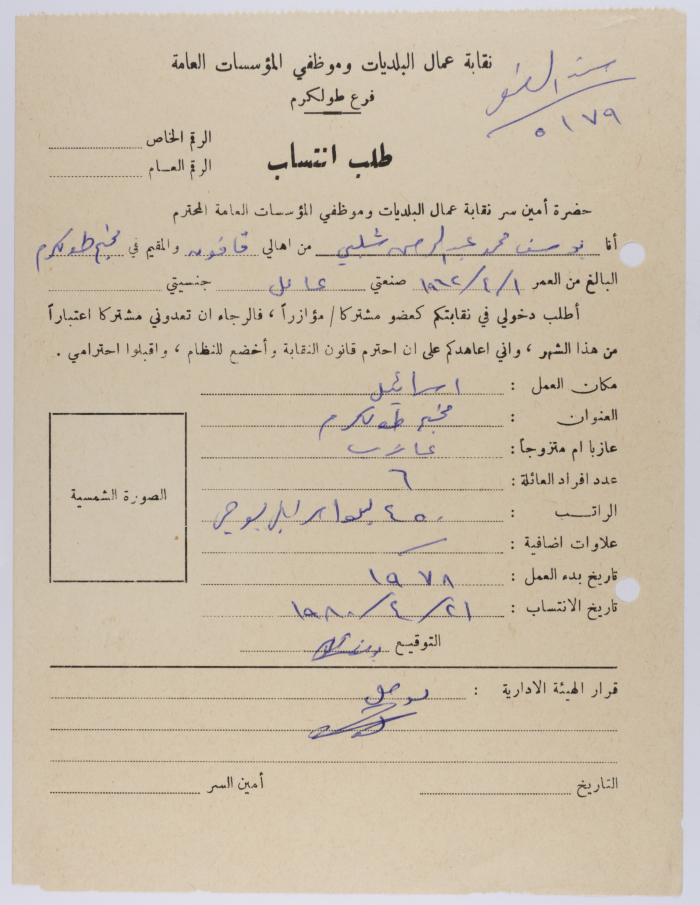 نقابة عمال البلديات وموظفي المؤسسات العامة
فرع طولكرم
٥١٧٩
طلب انتساب
الرقم الخاص
الرقم العـام
حضرة أمين سر نقابة عمال البلديات وموظفي المؤسسات العامة المحترم
أنا يوسف محمد عبد الرحمن شلبي من اهالي قاقون والمقيم في مخيم طولكرم
البالغ من العمر ١/٤/١٩٦٢ صنعتي عامل جنسيتي
أطلب دخولي في نقابتكم كعضو مشتركا / مؤازراً ، فالرجاء ان تعدوني مشتركا اعتباراً
من هذا الشهر ، واني اعاهدكم على ان احترم قانون النقابة وأخضع للنظام ، واقبلوا احترامي .
مكان العمل : اسرائيل
العنوان : مخيم طولكرم
عازبا ام متزوجاً : عازب
عدد افراد العائلة : ٦
الراتــب : ٤٥٠
علاوات اضافية :
تاريخ بدء العمل : ١٩٧٨
تاريخ الانتساب : ٢١/٤/١٩٨٠
الصورة الشمسية
التوقيع
قرار الهيئة الادارية :
التاريخ
أمين السر